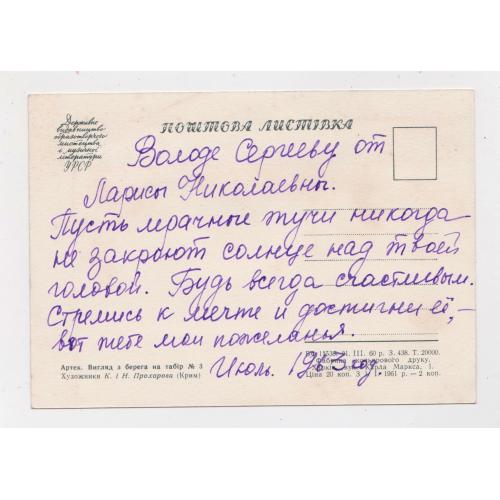 Державне
видавництво
образотворчого
мистецтва
і музичної
літератури
УРСР
ПОШТОВА ЛИСТІВКА
Володе Сергееву от
Ларисы Николаевны.
Пусть мрачные тучи никогда
не закроют солнце над твоей
головой. Будь всегда счастливым.
Стремись к мечте и достигни её, —
вот тебе мои пожеланья.
Июль. 1963 год.
Артек. Вигляд з берега на табір № 3
Художники К. і Н. Прохорови (Крим)
11538. 01. III. 60 р. З. 438. Т. 20000.
кольорового друку,
Карла Маркса, 1.
Ціна 20 коп. З 1. I. 1961 р. — 2 коп.